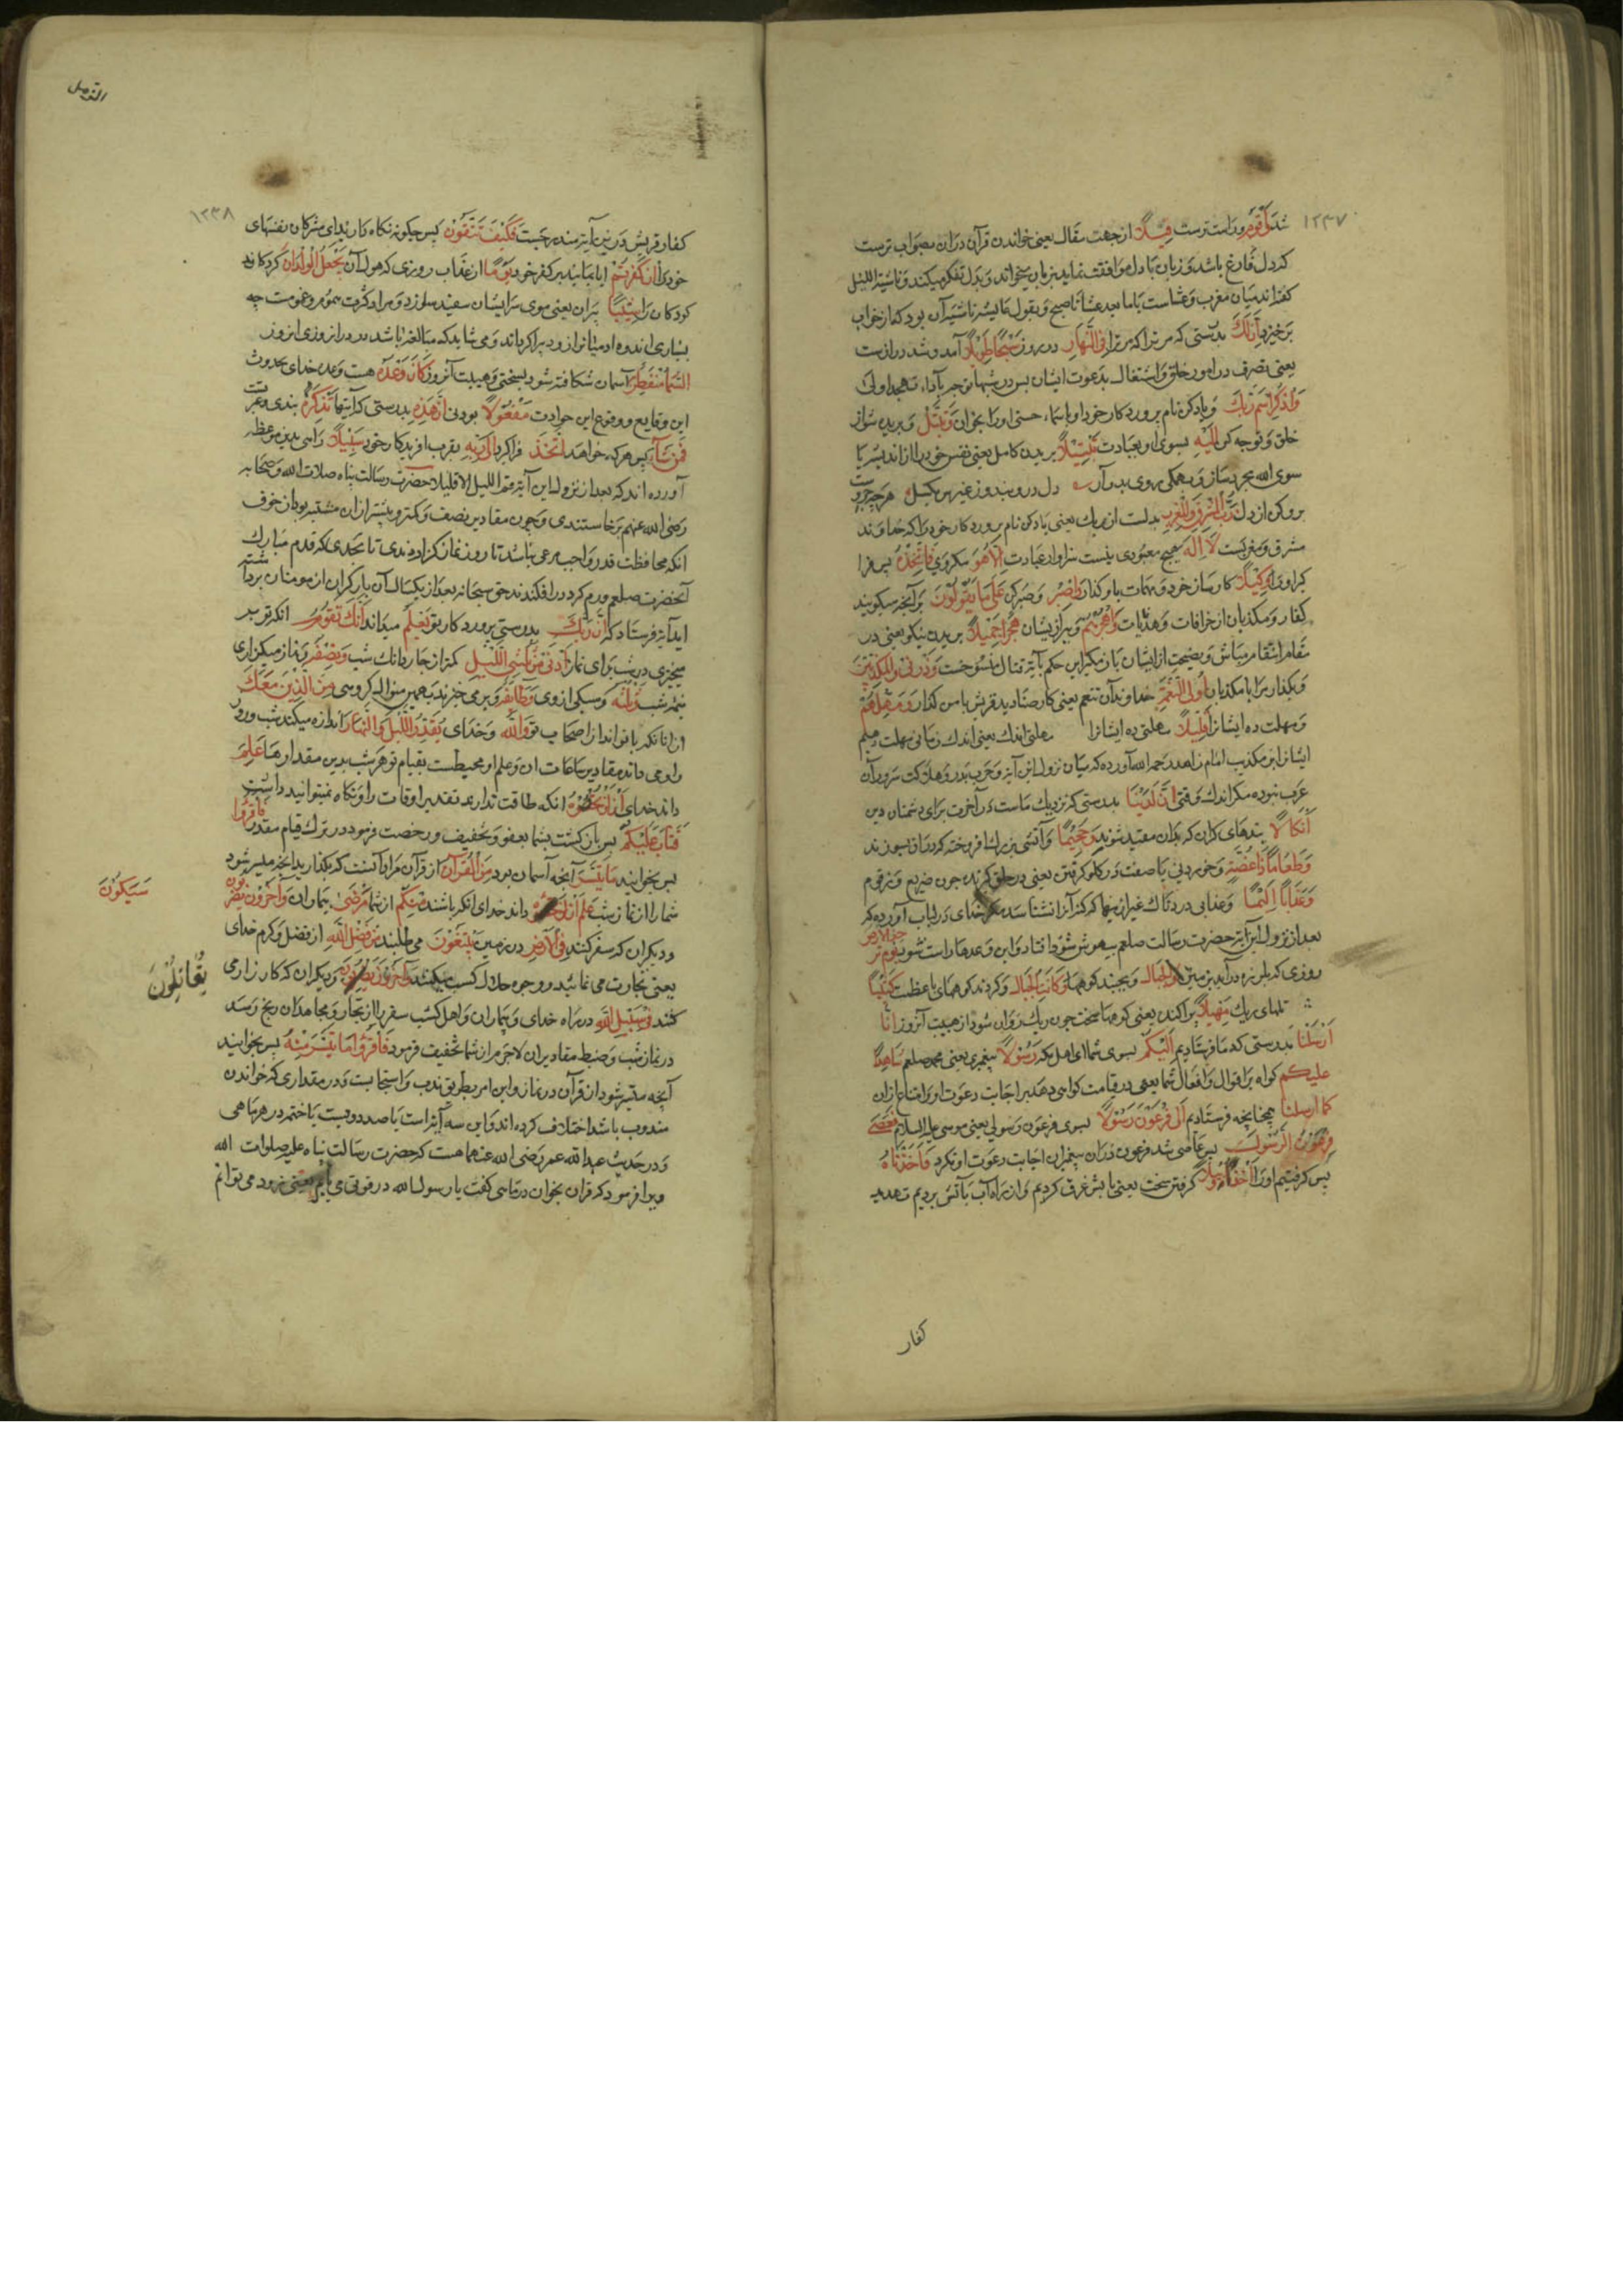 ١٢٣٧
شد وَأَقْوَمُ و راست ترست قِيلاً از جهت مقال یعنی خواندن قرآن در آن بصواب ترست
که دل فارغ باشد و زبان با دل موافقت نماید بزبان میخواند و بدل تفکر میکند و ناشئة اللیل
گفته اند میان مغرب و عشاست یا ما بعد عشا تا صبح و بقول عایشه ناشئه آن بود که از خواب
برخیزد إِنَّ لَكَ بدرستی که مر تراکه مر ترا فِي النَّهَارِ در روز سَبْحًا طَوِيلاً آمد و شد درازست
یعنی تصرف در امور خلق و اشتغال بدعوت ایشان پس در شبها توجه باداء تهجد اولی
وَاذْكُرِ اسْمَ رَبِّكَ و یاد کن نام پروردکار خود او باسماء حسنی او را بخوان وَتَبَتَّلْ و بریده شو از
خلق و توجه کن إِلَيْهِ بسوی او بعبادت تَبْتِيلاً بریدن کامل یعنی نفس خود را از اندیشه ما
سوی الله مجرد ساز و بهمکی روی بدو آر دل درو بند و ز غیرش بکسل هر چه جز اوست
برون کن از دل رَبُّ الْمَشْرِقِ وَالْمَغْرِبِ بدلست از ربک یعنی یاد کن نام پروردکار خود را که خداوند
مشرق و مغربست لَا إِلٰهَ هیچ معبودی نیست سزاوار عبادت إِلَّا هُوَ مکر وی فَاتَّخِذْهُ پس فرا
کیر او را وَكِيلاً کارساز خود و مهمات باو کذار وَاصْبِرْ و صبر کن عَلَى مَا يَقُولُونَ بر آنچه میکویند
کفار و مکذبان از خرافات و هذیات وَاهْجُرْهُمْ و ببر از یشان هَجْرًا جَمِيلاً بریدن نیکو یعنی در
مقام انتقام مباش و نصیحت از ایشان باز مکیر این حکم بآیه قتال منسوخست وَذَرْنِي وَالْمُكَذِّبِينَ
و بکذار مرا با مکذبان أُولِي النَّعْمَةِ خداوندان تنعم یعنی کار صنادید قریش با من کذار وَمَهِّلْهُمْ
و مهلت ده ایشانرا قَلِيلاً مهلتی اندک یعنی اندک زمانی مهلت دهیم
ایشانرا بر تکذیب امام زاهد رحمه الله آورده که میان نزول این آیه و حرب بدر و هلاکت سروران
عرب نبوده مکر اندک وقتی إِنَّ لَدَيْنَا بدرستی که نزدیک ماست در آخرت برای دشمنان دین
أَنْكَالاً بندهای کران که بدان مقید شوند وَجَحِيمًا و آتشی بزرک افروخته که در آن بسوزند
وَطَعَامًا ذَا غُصَّةٍ و خوردنی با صفت در کلو کرفتن یعنی در حلق کیرنده چون ضریع و زقوم
وَعَذَابًا أَلِيمًا و عذابی دردناک غیر از ینها که کنه آنرا نشناسد مکر خدای در لباب آورده که
بعد از نزول این آیه حضرت رسالت صلعم بیهوش شد و افتاد و این وعدها راست شود يَوْمَ تَرْجُفُ الْأَرْضُ
روزی که بلرزه در آید زمین وَالْجِبَالُ و بجنبد کوهها وَكَانَتِ الْجِبَالُ و کردند کوههای با عظمت كَثِيبًا
تلهای ریک مَهِيلاً پراکنده یعنی کوهها سخت چون ریک روان شود از هیبت آنروز إِنَّا
أَرْسَلْنَا بدرستی که ما فرستادیم إِلَيْكُمْ بسوی شما ای اهل مکه رَسُولاً پیغمبری یعنی محمد صلعم شَاهِدًا
عَلَيْكُمْ کواه بر اقوال و افعال شما یعنی در قیامت کواهی دهد بر اجابت دعوت او و امتناع از ان
كَمَا أَرْسَلْنَا همچنانچه فرستادیم إِلَى فِرْعَوْنَ رَسُولاً بسوی فرعون رسولی یعنی موسی علیه السلام فَعَصَى
فِرْعَوْنُ الرَّسُولَ پس عاصی شد فرعون در آن پیغمبران اجابت دعوت او نکرد فَأَخَذْنَاهُ
پس کرفتیم او را أَخْذًا وَبِيلاً کرفتن سخت یعنی با بش غرق کردیم و از راه آب بآتش بردیم تهدید
کفار
المزمل
١٢٣٨
کفار قریش در ین آیه مندرجست فَكَيْفَ تَتَّقُونَ پس چکونه نکاه دارید ای مشرکان نفسهای
خود را إِنْ كَفَرْتُمْ ایا بمانید بر کفر خود يَوْمًا از عذاب روزی که هول آن يَجْعَلُ الْوِلْدَانَ کرداند
کودکان را شِيبًا پیران یعنی موی سر ایشان سفید سازد و مراد کثرت هموم و غمومست چه
بسیاری اندوه ادمیانرا زود پیر کرداند و می شاید که مبالغه باشد در درازی روزی انروز
السَّمَاءُ مُنْفَطِرٌ آسمان شکافته شود بِهِ بسختی و هیبت آنروز كَانَ وَعْدُهُ هست وعده خدای بحدوث
این وقایع و وقوع این حوادث مَفْعُولاً بودنی إِنَّ هَذِهِ بدرستی که آیتها تَذْكِرَةٌ پندی و عبرتست
فَمَنْ شَاءَ پس هر که خواهد اتَّخَذَ فرا کیرد إِلَى رَبِّهِ بقرب افریدکار خود سَبِيلاً راهی بدین موعظه
آورده اند که بعد از نزول این آیه قم اللیل الا قلیلا حضرت رسالت پناه صلات الله و صحابه
رضی الله عنهم برخاستندی و چون مقادیر نصف و کمتر و بیشتر از ان مشتبه بود از خوف
انکه محافظت قدر واجب مرعی باشد تا روز نماز کزاردندی تا بحدی که قدم مبارک
آنحضرت صلعم ورم کرد در افکندند حق سبحانه بعد از یکسال آن بار کران از مومنان برداشته
این آیه فرستاد که إِنَّ رَبَّكَ بدرستی پروردکار تو يَعْلَمُ میداند أَنَّكَ تَقُومُ انکه تو بر
میخیزی در شب برای نماز أَدْنَى مِنْ ثُلُثَيِ اللَّيْلِ کمتر از چهار دانک شب وَنِصْفَهُ و نماز میکزاری
نیمه شب وَثُلُثَهُ و سیکی ازوی وَطَائِفَةٌ و بر می خیزند بهمین منوال کروهی مِنَ الَّذِينَ مَعَكَ
از انانکه با تو اند از اصحاب تو وَاللّٰهُ و خدای يُقَدِّرُ اللَّيْلَ وَالنَّهَارَ اندازه میکند شب و روز
را و می داند مقادیر ساعات ان و علم او محیطست بقیام تو هر شب بدین مقدارها عَلِمَ
داند خدای أَنْ لَنْ تُحْصُوهُ انکه طاقت ندارید تقدیر اوقات را و نکاه نمیتوانید داشتن
فَتَابَ عَلَيْكُمْ پس باز کشت بشما بعفو و تخفیف و رخصت فرمود در ترک قیام مقدور فَاقْرَؤُا
پس بخوانید مَا تَيَسَّرَ آنچه آسان بود مِنَ الْقُرْآنِ از قرآن مراد آنست که بکذارید آنچه میسر شود
شما را از نماز شب عَلِمَ أَنْ داند خدای انکه باشند مِنْكُمْ از شما مَرْضَى بیماران وَآخَرُونَ يَضْرِبُونَ
و دیکران که سفر کنند فِي الْأَرْضِ در زمین يَبْتَغُونَ می طلبند مِنْ فَضْلِ اللّٰهِ از فضل و کرم خدای
یعنی تجارت می نمایند و وجوه حلال کسب میکنند وَآخَرُونَ و دیکران که کارزار می
کنند فِي سَبِيلِ اللّٰهِ در راه خدای و بیماران و اهل کسب سفر را از تجار و مجاهدان رنج رسد
در نماز شب و ضبط مقادیر ان لاجرم از شما تخفیف فرمود فَاقْرَؤُا مَا تَيَسَّرَ مِنْهُ پس بخوانید
آنچه میسر شود از قرآن در نماز و این امر بطریق ندب و استحبابست و در مقداری که خواندن
مندوب باشد اختلاف کرده اند و این سه آیتر است یا صد دویست یا ختم در هر ماهی
و در حدیث عبدالله عمر رضی الله عنهما هست که حضرت رسالت پناه علیه صلوات الله
ویرا فرمود که قران بخوان در ماهی کفت یا رسول الله در قوتی می یابم یعنی زود می توانم
سَيَكُونُ
يُقَاتِلُونَ